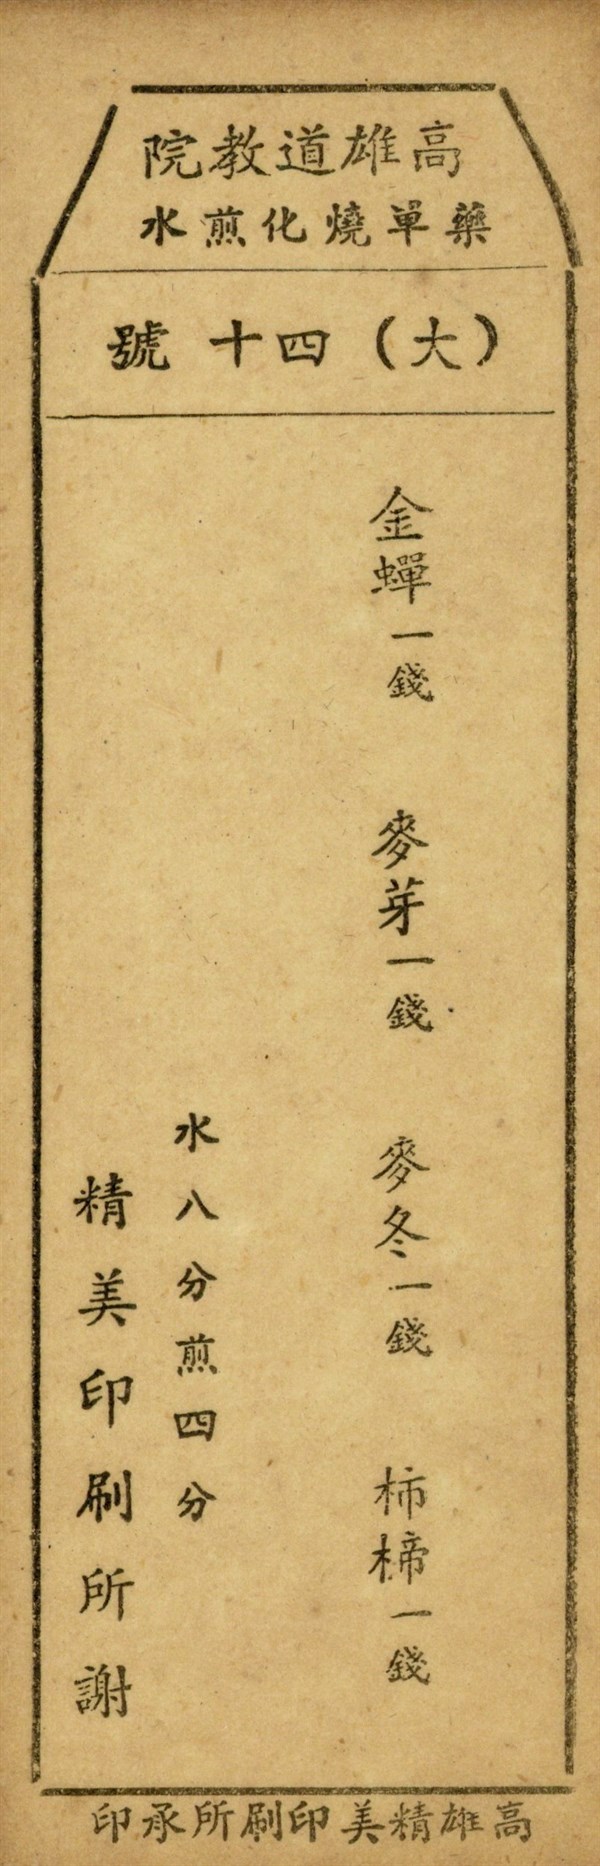 高雄道教院
藥單燒化煎水
（大）四十號
金蟬一錢　麥芽一錢　麥冬一錢　柿楴一錢
水八分煎四分
精美印刷所謝
高雄精美印刷所承印